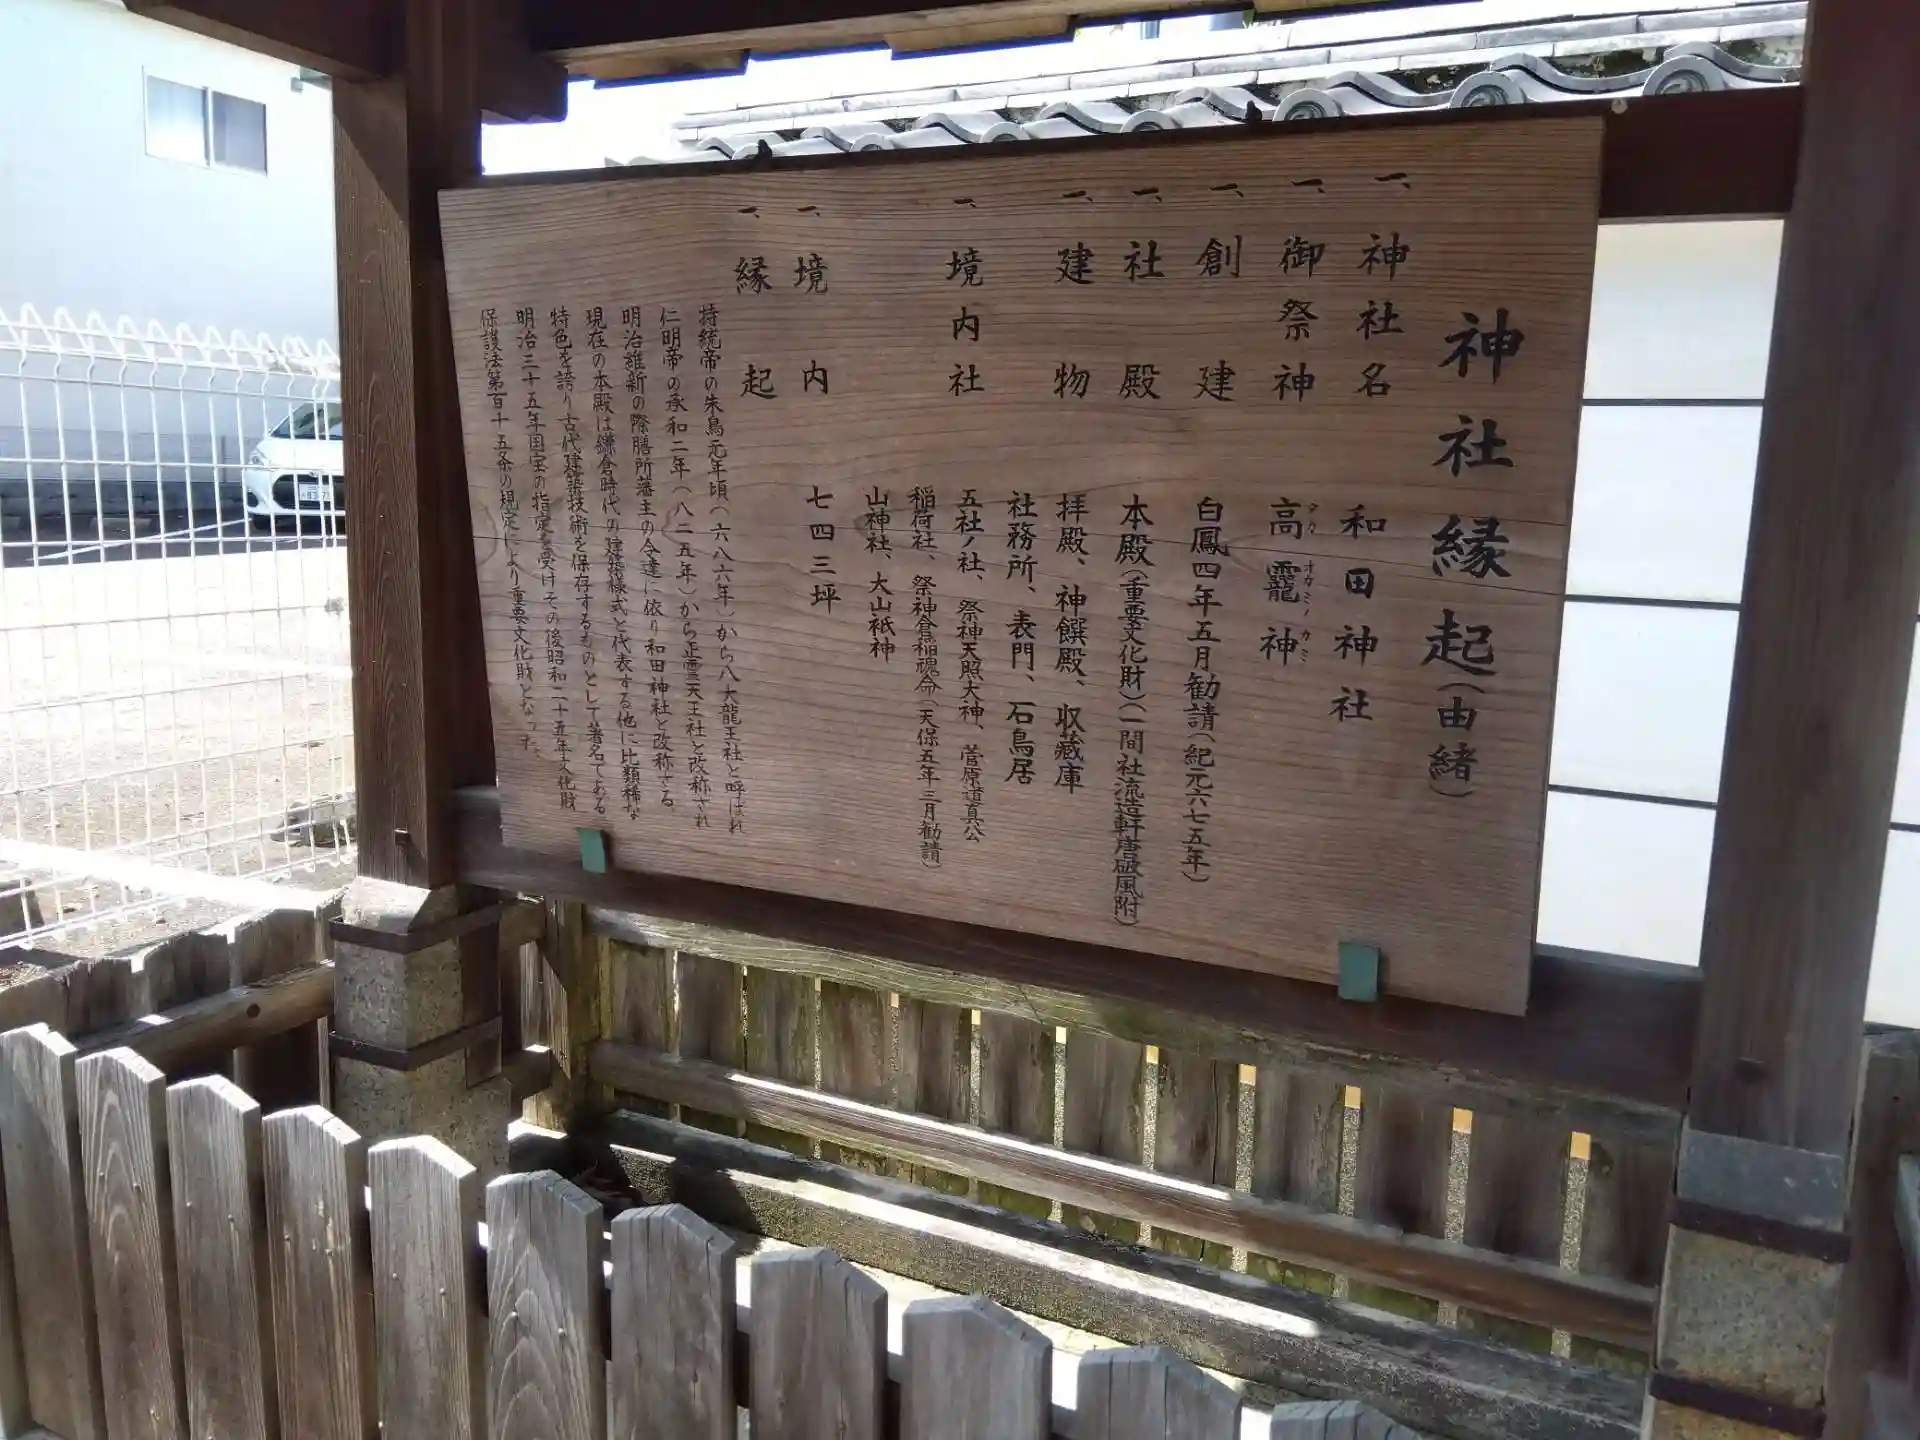 神社縁起(由緒)
一、神社名 和田神社
一、御祭神 高龗神
タカ オカミノ カミ
一、創建 白鳳四年五月勧請(紀元六七五年)
一、社殿 本殿(重要文化財)(一間社流造軒唐破風附)
一、建物 拝殿、神饌殿、収蔵庫
社務所、表門、石鳥居
一、境内社 五社ノ社、祭神天照大神、菅原道真公
稲荷社、祭神倉稲魂命(天保五年三月勧請)
山神社、大山祇神
一、境内 七四三坪
一、縁起
持統帝の朱鳥元年頃(六八六年)から八大龍王社と呼ばれ
仁明帝の承和二年(八二五年)から正霊天王社と改称され
明治維新の際膳所藩主の令達に依り和田神社と改称さる
現在の本殿は鎌倉時代の建築様式を代表する他に比類稀な
特色を誇り古代建築技術を保存するものとして著名である
明治三十五年国宝の指定を受けその後昭和二十五年文化財
保護法第百十五条の規定により重要文化財となった。